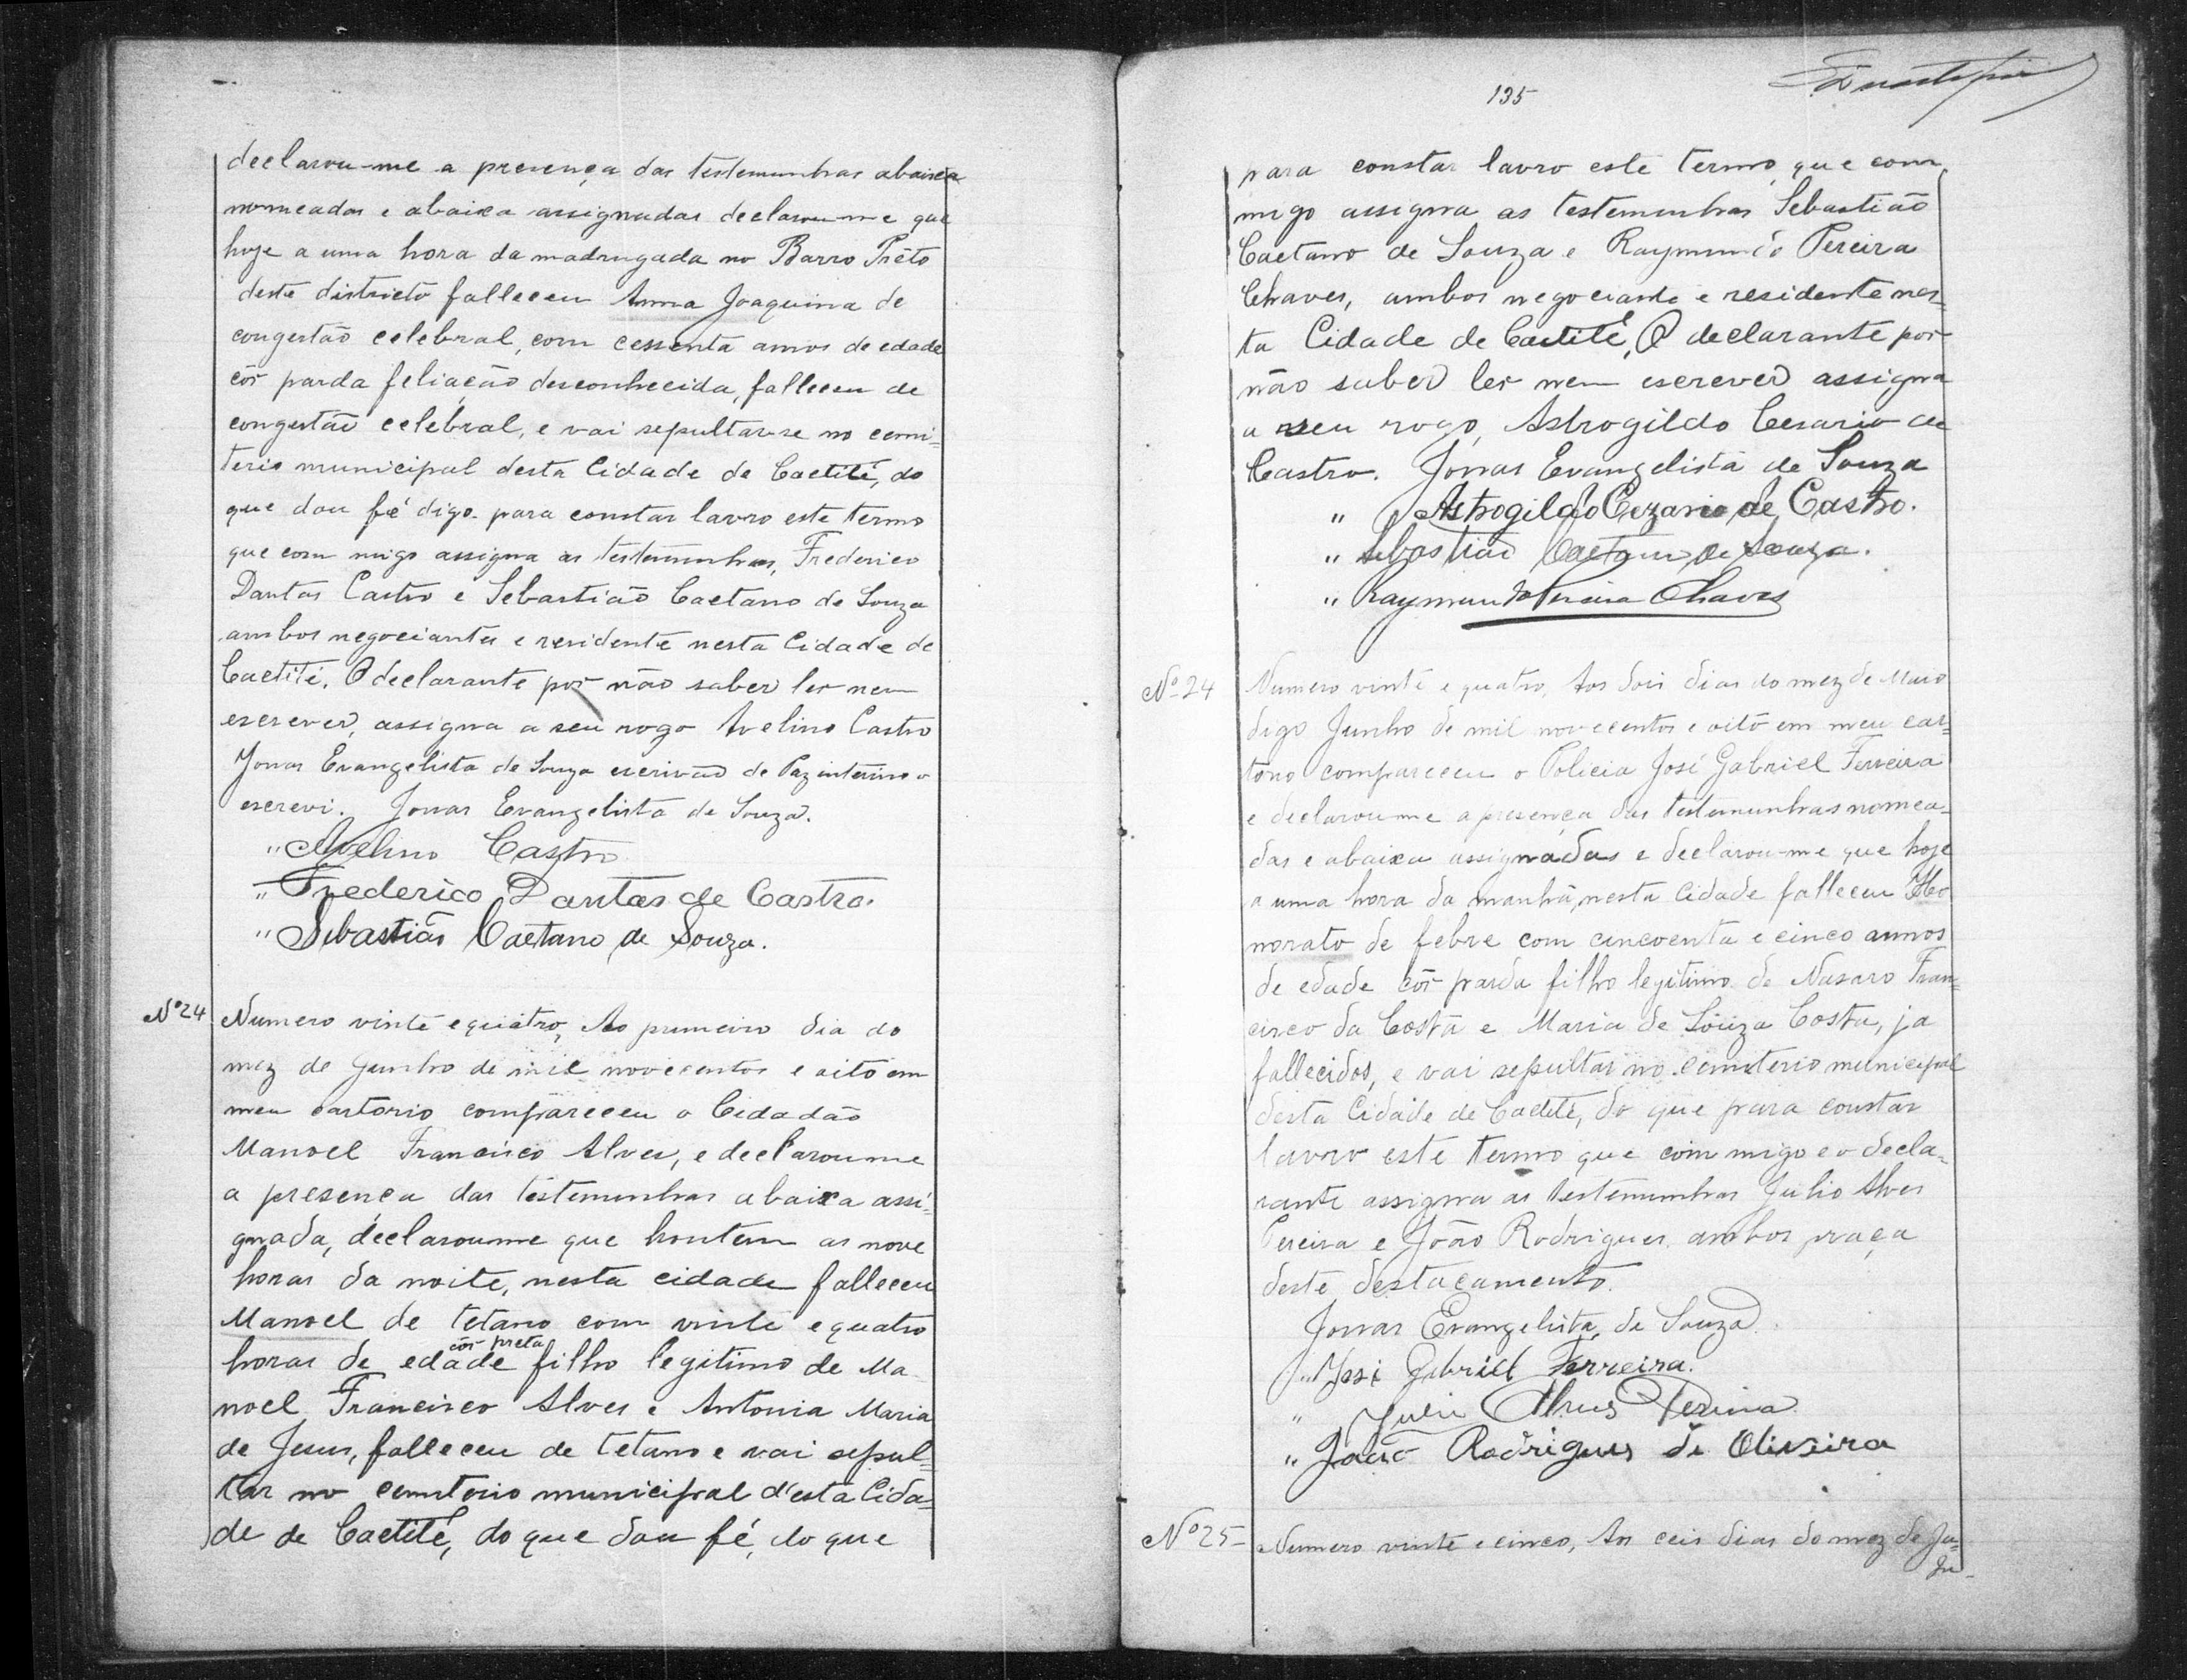 declarou-me a presença das testemunhas abaixa
nomeadas e abaixa assignadas declarou-me que
hoje a uma hora da madrugada no Barro Prêto
deste districto falleceu Anna Joaquina de
congestão celebral, com cessenta annos de edade
côr parda feliação desconhecida, falleceu de
congestão celebral, e vai sepultar-se no cemi=
terio municipal desta Cidade de Caetité, do
que dou fé digo para constar lavro este termo
que com migo assigna as testemunhas, Frederico
Dantas Castro e Sebastião Caetano de Souza
ambos negociantes e residente nesta Cidade de
Caetité. O declarante por não saber ler nem
escrever, assigna a seu rogo Avelino Castro
Jonas Evangelista de Souza escrivão de Paz interino o
escrevi. Jonas Evangelista de Souza.
" Avelino Castro
" Frederico Dantas de Castro.
" Sebastião Caetano de Souza.
Nº 24 Numero vinte e quatro, Ao primeiro dia do
mez de Junho de mil novecentos e oito em
meu cartorio compareceu o Cidadão
Manoel Francisco Alves, e declaroume
a presença das testemunhas abaixa assi=
gnada, declaroume que hontem as nove
horas da noite, nesta cidade falleceu
Manoel de tetano com vinte e quatro
côr preta
horas de edade filho legitimo de Ma
noel Francisco Alves e Antonia Maria
de Jesus, falleceu de tetano e vai sepul=
tar no cemiterio municipal d'esta Cida=
de de Caetité, do que dou fé, do que
135
para constar lavro este termo, que com
migo assigna as testemunhas Sebastião
Caetano de Souza e Raymundo Pereira
Chaves, ambos negociante e residente nes=
ta Cidade de Caetité, O declarante por
não saber ler nem escrever assigna
a seu rogo, Astrogildo Cesario de
Castro. Jonas Evangelista de Souza
" Astrogildo Cezario de Castro.
" Sebastião Caetano de Souza.
" Raymundo Pereira Chaves
Nº 24 Numero vinte e quatro, Aos dois dias do mez de Maio
digo Junho de mil novecentos e oito em meu car=
torio compareceu o Policia José Gabriel Ferreira
e declaroume a presença das testemunhas nomea=
das e abaixa assignadas e declarou-me que hoje
a uma hora da manhã, nesta Cidade falleceu Ho
norato de febre com cincoenta e cinco annos
de edade côr parda filho legitimo de Nasaro Fran=
cisco da Costa e Maria de Souza Costa, ja
fallecidos, e vai sepultar no cemiterio municipal
desta Cidade de Caetité, do que para constar
lavro este termo que com migo e o decla=
rante assigna as testemunhas Julio Alves
Pereira e João Rodrigues ambos praça
deste destacamento.
Jonas Evangelista de Souza.
" José Gabriel Ferreira.
" Julio Alves Pereira
" João Rodrigues de Oliveira
Nº 25 Numero vinte e cinco, Aos ceis dias do mez de Ju=
Ju-